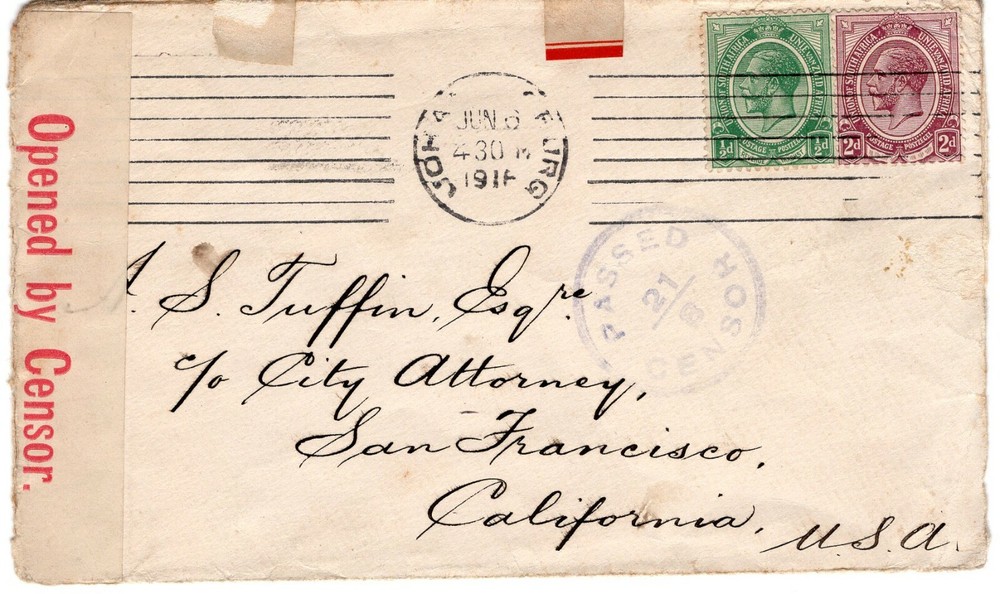 UNION OF SOUTH AFRICA UNIE VAN ZUID AFRIKA
½d POSTAGE POSTZEGEL ½d
UNION OF SOUTH AFRICA UNIE VAN ZUID AFRIKA
2d POSTAGE POSTZEGEL 2d
JUN 6
4 30 M
191
Opened by Censor.
PASSED
CENSOR
S. Tuffin, Esqre.
c/o City Attorney,
San Francisco.
California.
U.S.A.